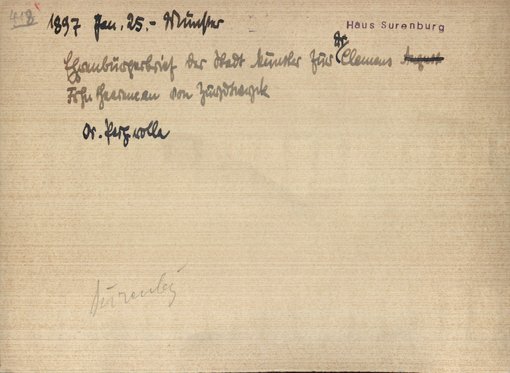 418
1897 Jan. 25.- Münster
Haus Surenburg
Ehrenbürgerbrief der Stadt Münster für Dr. Clemens August
Frhr Heereman von Zuydtwyck
Or. Perg.rolle
Surenbg